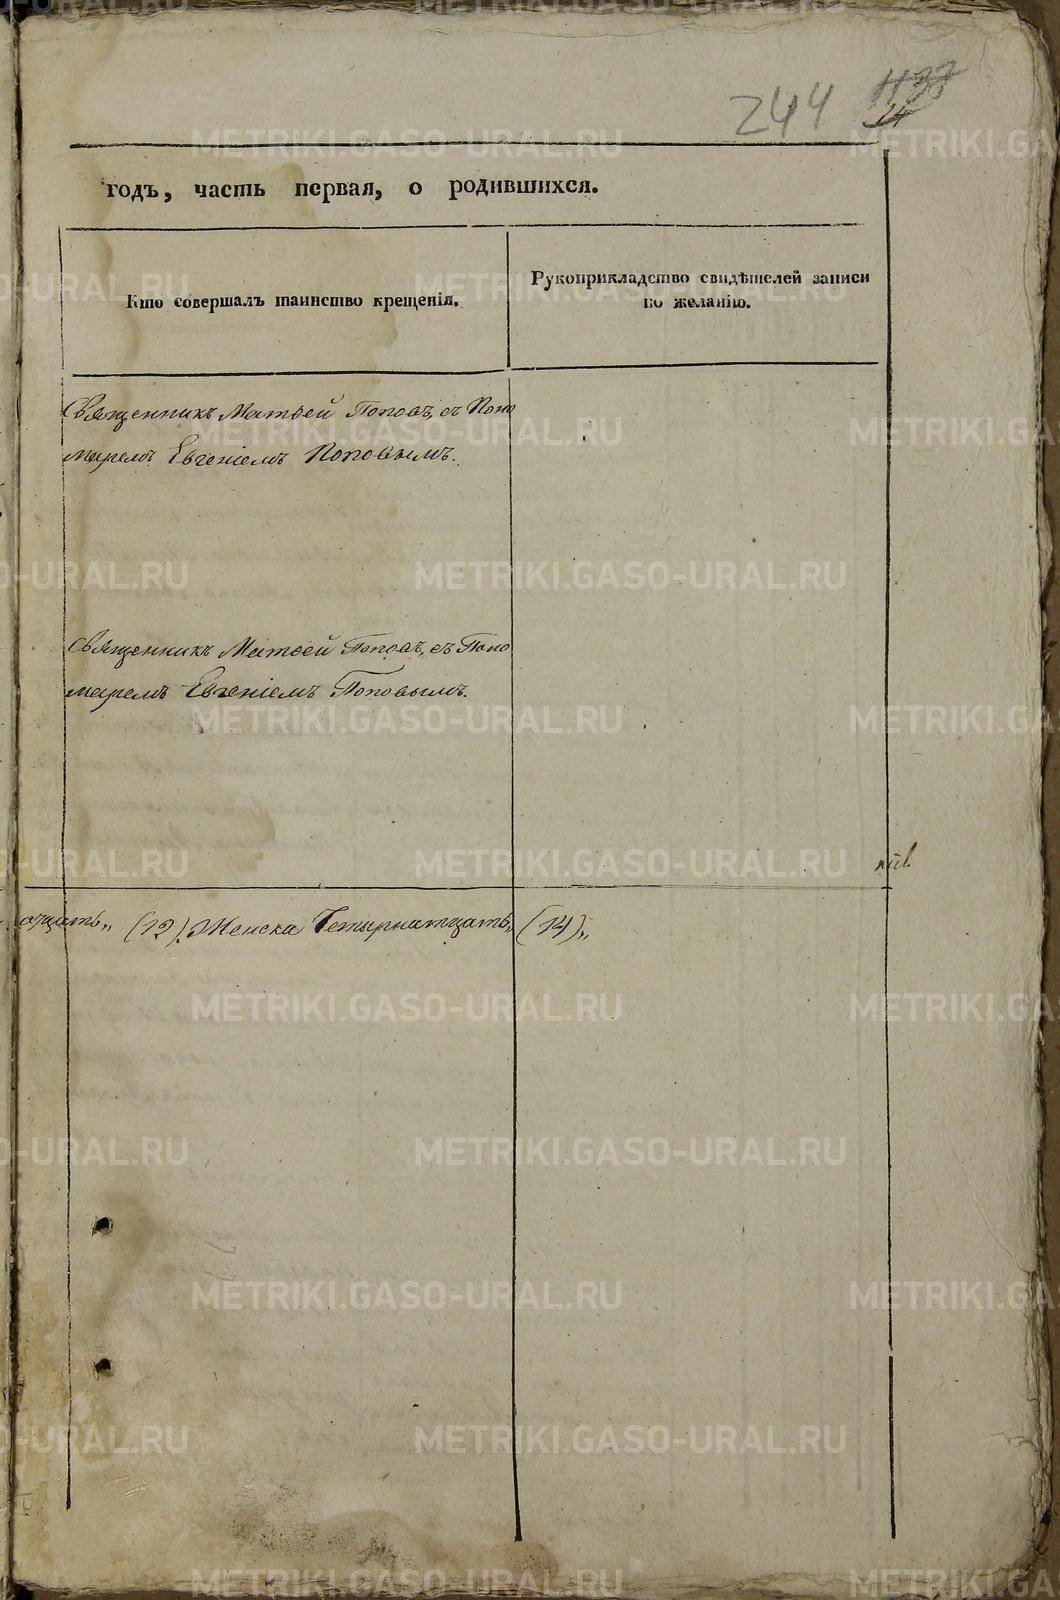 244 1137
24
годъ, часть первая, о родившихся.
Кто совершалъ таинство крещенія.
Рукоприкладство свидѣтелей записи
по желанію.
Священникъ Матѳей Поповъ, съ Поно
маремъ Евгеніемъ Поповымъ.
Священникъ Матѳей Поповъ, съ Поно
маремъ Евгеніемъ Поповымъ.
(12). Женска Четырнатцать, (14),,
METRIKI.GASO-URAL.RU